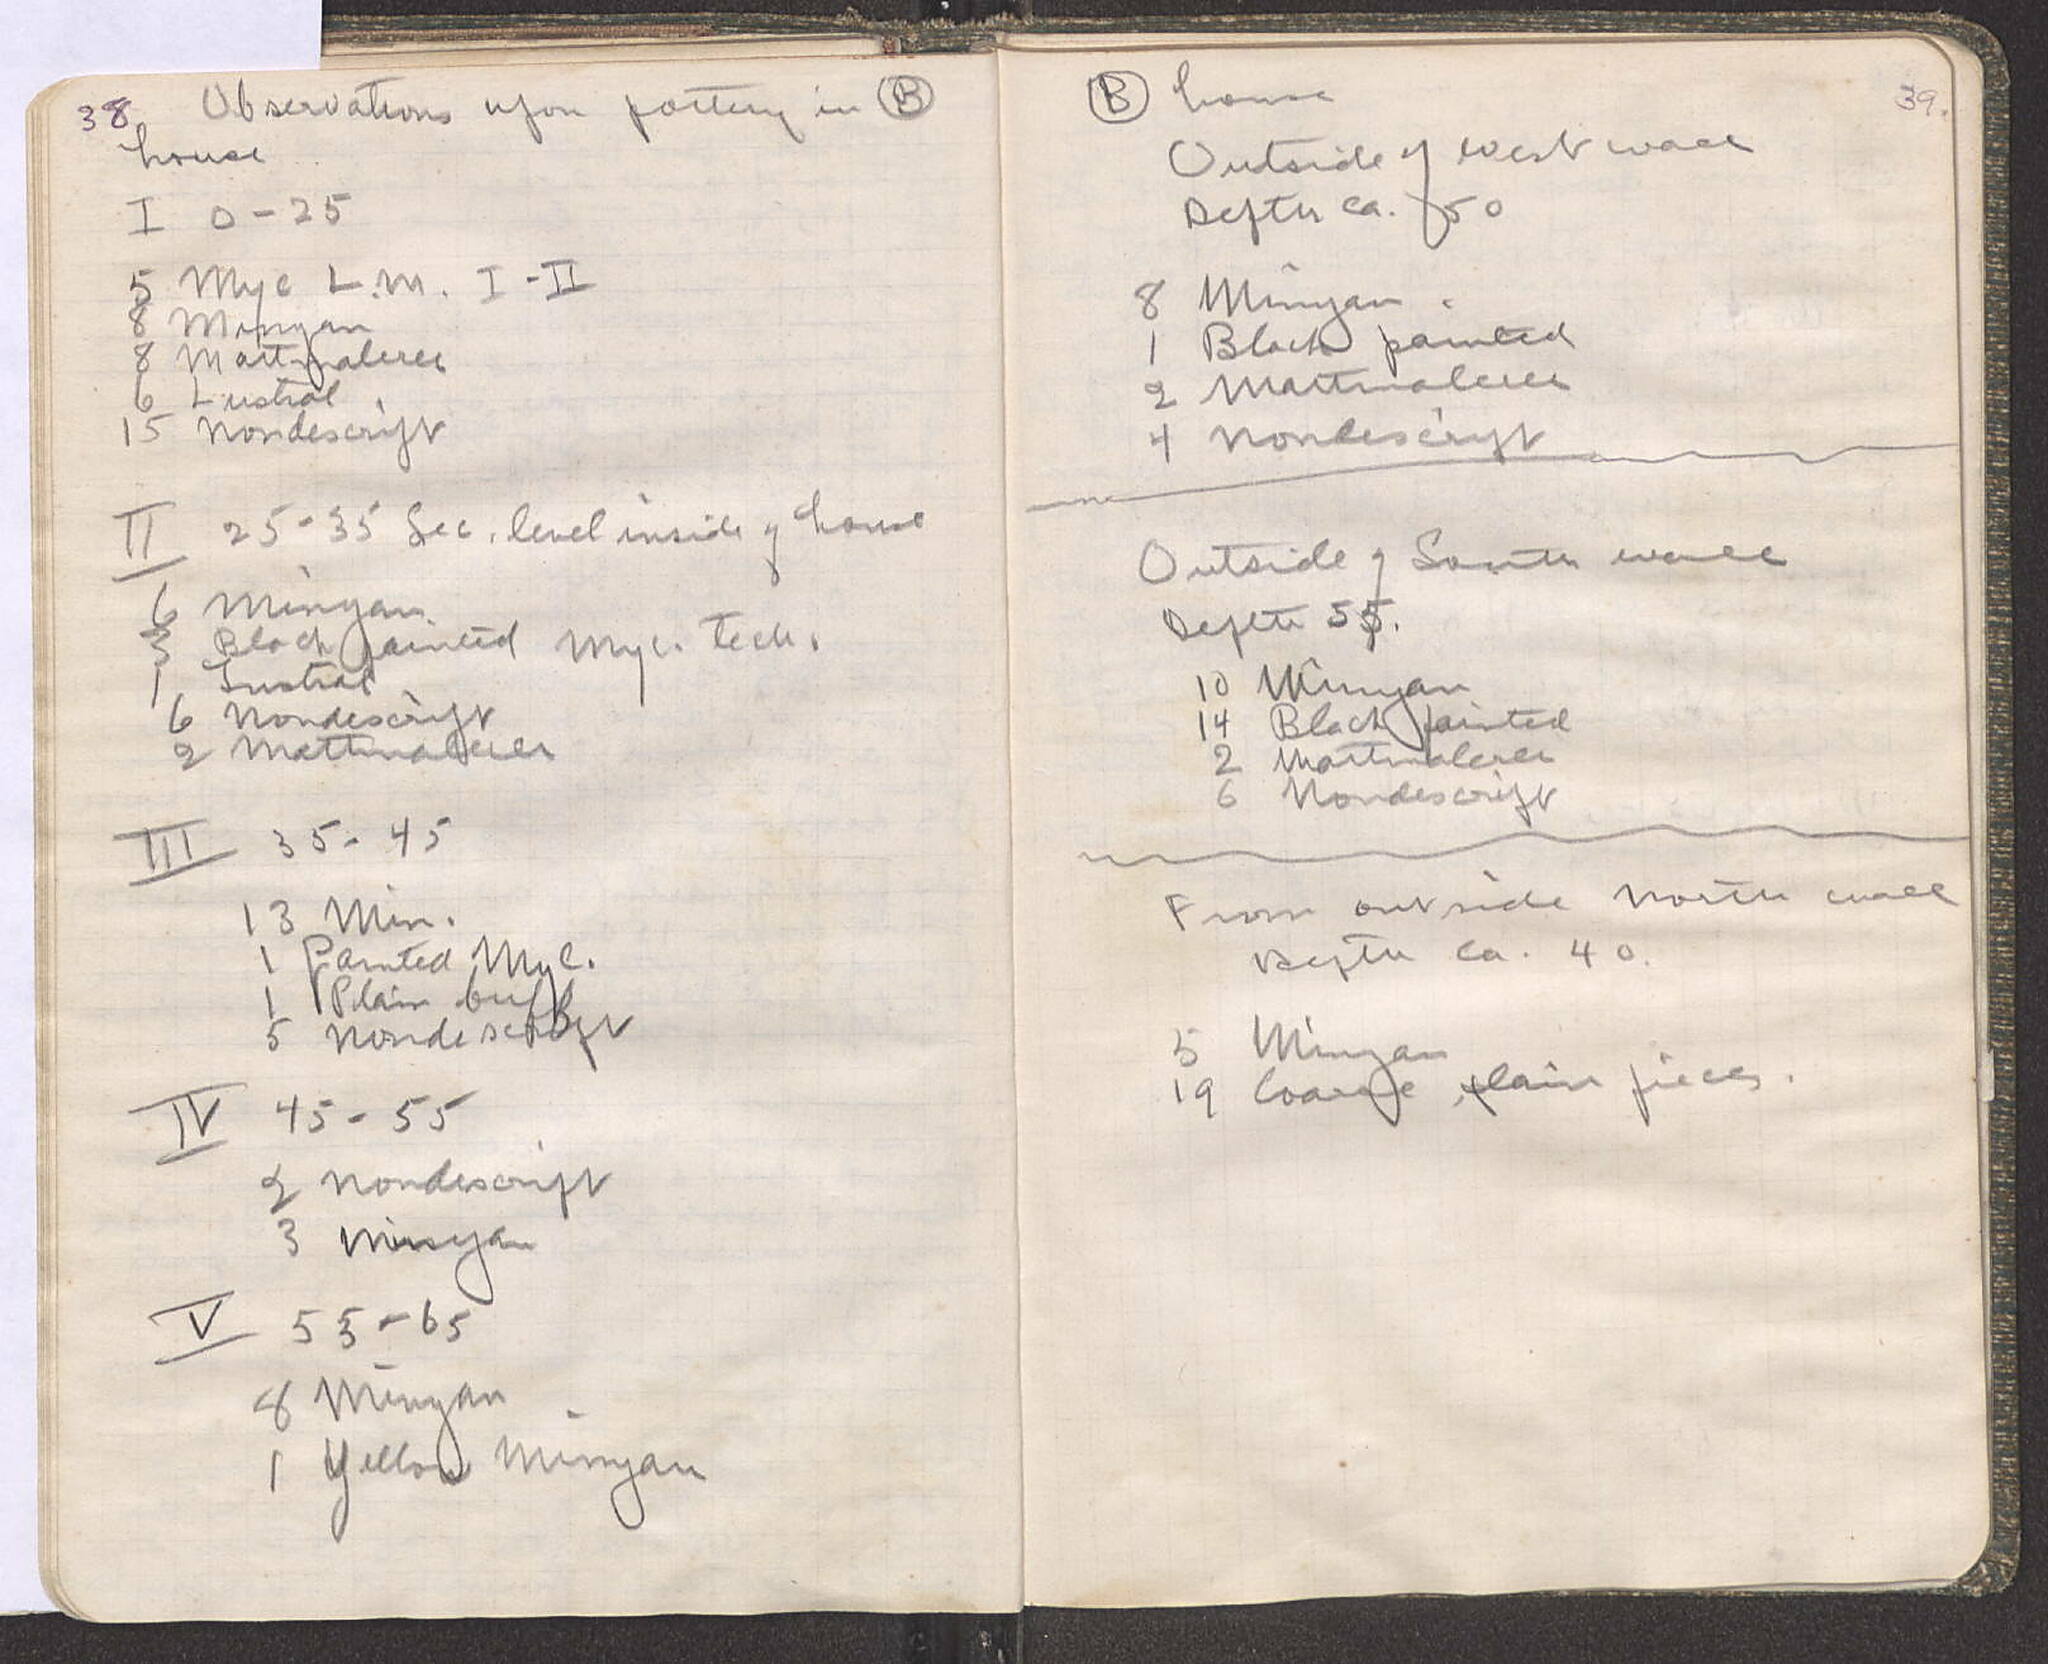 38 Observations upon pottery in B
house
I 0-25
5 Myc L.M. I-II
8 Minyan
8 Mattmalerei
6 Lustral
15 Nondescript
II 25-35 Sec. level inside of house
6 Minyan
3 Black painted Myc. tech.
1 Lustral
6 Nondescript
2 Mattmalerei
III 35-45
13 Min.
1 Painted Myc.
1 Plain buff
5 Nondescript
IV 45-55
2 Nondescript
3 Minyan
V 55-65
8 Minyan
1 Yellow Minyan
B house 39.
Outside of west wall
Depth ca. 50
8 Minyan.
1 Black painted
2 Mattmalerei
4 Nondescript
Outside of South wall
Depth 55.
10 Minyan
14 Black painted
2 Mattmalerei
6 Nondescript
From outside North wall
Depth ca. 40.
5 Minyan
19 Coarse plain pieces.